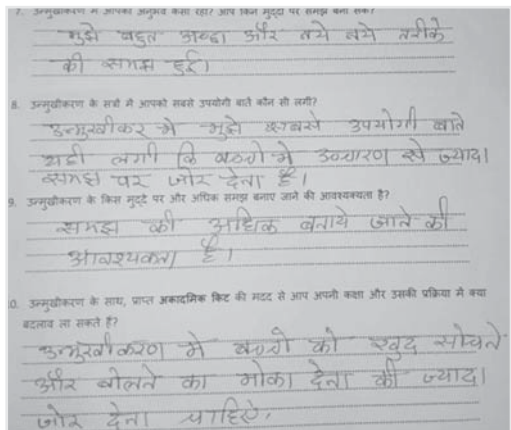 7. उन्मुखीकरण में आपका अनुभव कैसा रहा? आप किन मुद्दों पर समझ बना सके?
मुझे बहुत अच्छा और नये नये तरीके
की समझ हुई।
8. उन्मुखीकरण के सत्रों में आपको सबसे उपयोगी बातें कौन सी लगी?
उन्मुखीकर मे मुझे सबसे उपयोगी बाते
यही लगी कि बच्चो मे उच्चारण से ज्यादा
समझ पर जोर देना है।
9. उन्मुखीकरण के किस मुद्दे पर और अधिक समझ बनाए जाने की आवश्यक्यता है?
समझ की अधिक बनाये जाने की
आवश्यकता है।
0. उन्मुखीकरण के साथ, प्राप्त अकादमिक किट की मदद से आप अपनी कक्षा और उसकी प्रक्रिया में क्या
बदलाव ला सकते हैं?
उन्मुखीकरण मे बच्चो को खुद सोचने
और बोलने का मोका देना की ज्यादा
जोर देना चाहिए,